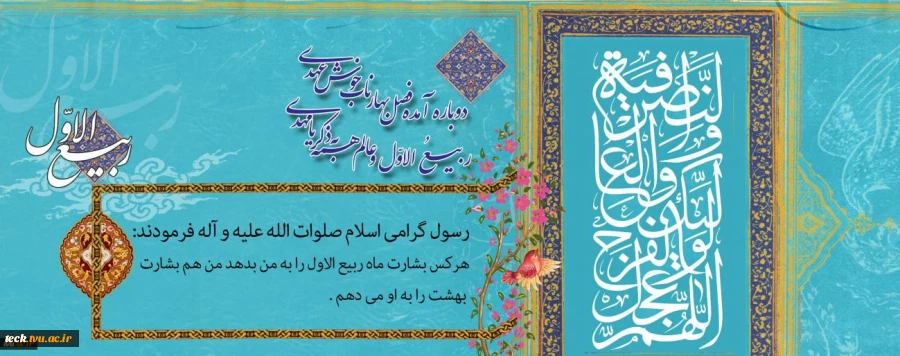 دوباره آمده فصل بهار ناب خوش عهدی
ربیعُ الاوّل و عالم همه به ذکر یا مهدی
ربیع الاوّل
رسول گرامی اسلام صلوات الله علیه و آله فرمودند:
هرکس بشارت ماه ربیع الاول را به من بدهد من هم بشارت
بهشت را به او می دهم .
اللّهمّ عجّل لولیّک الفرج
والعافیة والنّصر
ربیع الاول
teck.tvu.ac.ir